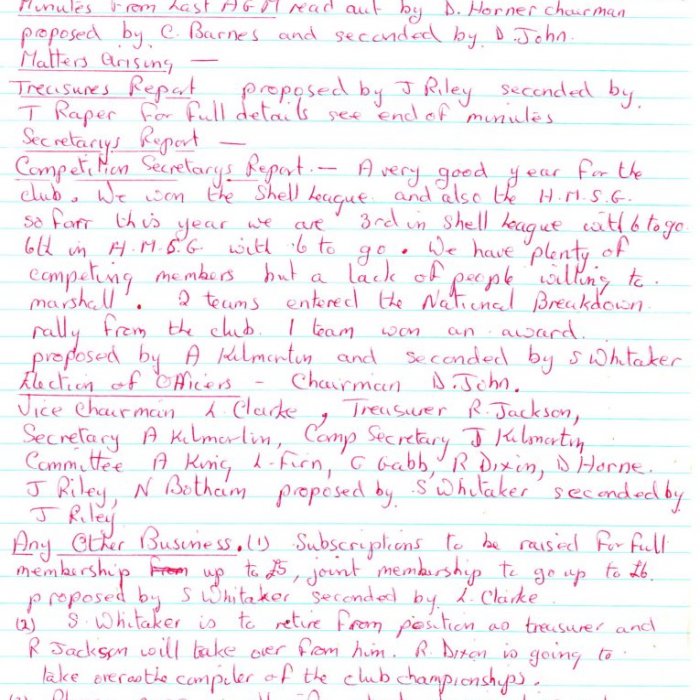 Minutes from last AGM read out by D. Horner chairman
proposed by C. Barnes and seconded by D. John.
Matters arising —
Treasures Report proposed by J Riley seconded by
T Raper for full details see end of miniules
Secretarys Report —
Competition Secretarys Report. — A very good year for the
club. We won the Shell League and also the H.M.S.G.
so farr this year we are 3rd in shell league with 6 to go
6th in H.M.S.G. with 6 to go. We have plenty of
competing members but a lack of people willing to
marshall. 2 teams entered the National Breakdown
rally from the club. 1 team won an award.
proposed by A Kilmartin and seconded by S Whitaker
Election of Officers - Chairman D. John.
Vice Chairman L. Clarke, Treasurer R. Jackson,
Secretary A Kilmartin, Comp Secretary J Kilmartin
Committee A King L. Firn, G Gabb, R Dixin, D Horne.
J Riley, N Botham proposed by S Whitaker seconded by
J Riley
Any Other Business. (1) Subscriptions to be raised for full
membership from up to £5, joint membership to go up to £6.
proposed by S Whitaker seconded by L. Clarke.
(2) S. Whitaker is to retire from position as treasurer and
R Jackson will take over from him. R. Dixon is going to
take over as the compiler of the club championships.